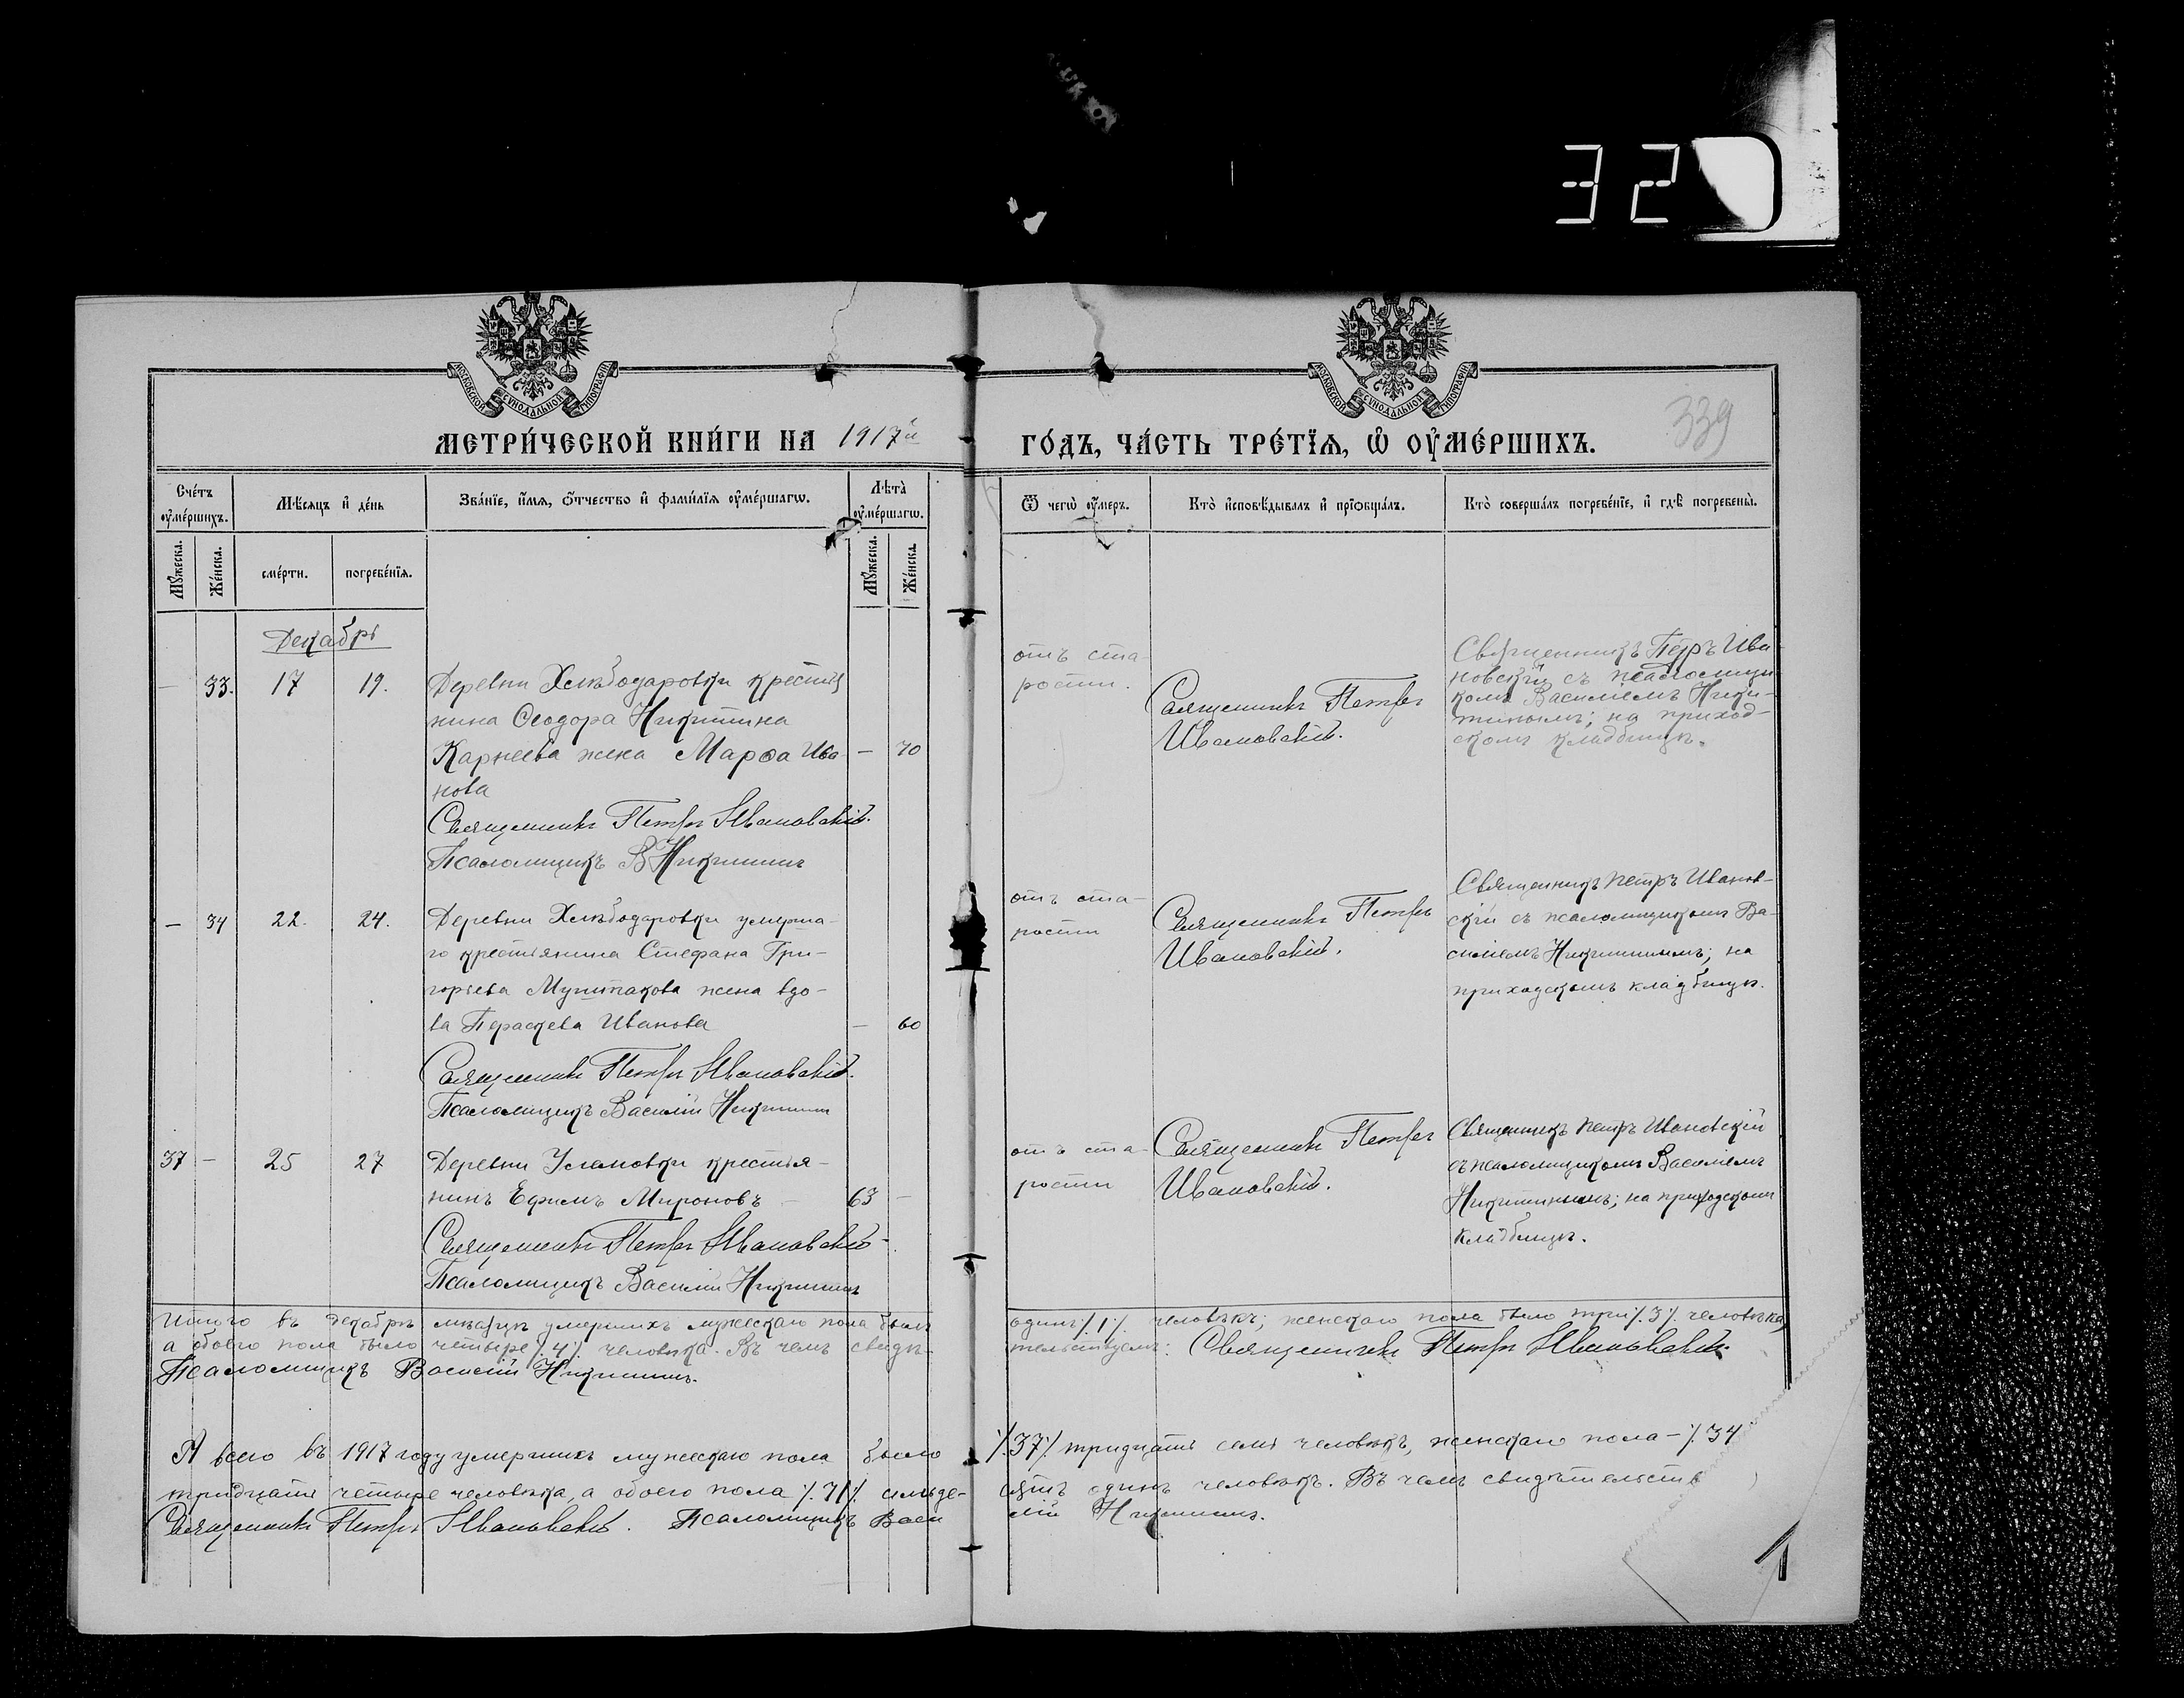 320
МОСКОВСКОЙ СѴНОДАЛЬНОЙ ТИПОГРАФІИ
МОСКОВСКОЙ СѴНОДАЛЬНОЙ ТИПОГРАФІИ
339
МЕТРИ́ЧЕСКОЙ КНИ́ГИ НА 1917й
ГО́ДЪ, ЧА́СТЬ ТРЕ́ТЇѦ, Ѡ҆ ОУ҆МЕ́РШИХЪ.
Сче́тъ оу҆ме́ршихъ.
Мѣ́сѧцъ и҆ де́нь
Зва́нїе, и҆́мѧ, ѻ҆́тчество и҆ фами́лїѧ оу҆ме́ршагѡ.
Лѣ̑та оу҆ме́ршагѡ.
Ѿ чегѡ̀ оу҆́меръ.
Кто̀ и҆сповѣ́дывалъ и҆ прїѡбща́лъ.
Кто̀ соверша́лъ погребе́нїе, и҆ гдѣ̀ погребены̀.
Мꙋ́жеска. Же́нска.
сме́рти. погребе́нїѧ.
Мꙋ́жеска. Же́нска.
Декабрь
— 33. 17 19. Деревни Хлѣбодаровки крестья
нина Ѳеодора Никитина
Карнеева жена Марѳа Ива — 70
нова
Священникъ Петръ Ивановскій.
Псаломщикъ В Никитинъ
отъ ста-
рости.
Священникъ Петръ
Ивановскій.
Священникъ Петръ Ива
новскій съ псаломщи
комъ Василіемъ Ники-
тинымъ; на приход-
скомъ кладбищѣ.
— 34 22. 24. Деревни Хлѣбодаровки умерша-
го крестьянина Стефана Гри-
горьева жена вдо-
ва Параскева Иванова — 60
Священникъ Петръ Ивановскій.
Псаломщикъ Василій Никитинъ
отъ ста-
рости
Священникъ Петръ
Ивановскій.
Священникъ Петръ Иванов-
скій съ псаломщикомъ Ва-
силіемъ Никитинымъ; на
приходскомъ кладбищѣ.
37 — 25 27 Деревни крестья-
нинъ Ефимъ Мироновъ — 63 —
Священникъ Петръ Ивановскій
Псаломщикъ Василій Никитинъ
отъ ста-
рости
Священникъ Петръ
Ивановскій.
Священникъ Петръ Ивановскій
съ псаломщикомъ Василіемъ
Никитинымъ; на приходскомъ
кладбищѣ.
Итого въ Декабрѣ мѣсяцѣ умершихъ мужескаго пола былъ одинъ ⁒1⁒ человѣкъ; женскаго пола было три ⁒3⁒ человѣка,
а обоего пола было четыре ⁒4⁒ человѣка. Въ чемъ свидѣ- тельствуемъ: Священникъ Петръ Ивановскій.
Псаломщикъ Василій Никитинъ.
А всего въ 1917 году умершихъ мужескаго пола было ⁒37⁒ тридцать семь человѣкъ, женскаго пола — ⁒34
тридцать четыре человѣка, а обоего пола ⁒71⁒ семьде- сятъ одинъ человѣкъ. Въ чемъ свидѣтельств
Священникъ Петръ Ивановскій. Псаломщикъ Васи лій Никитинъ.
1